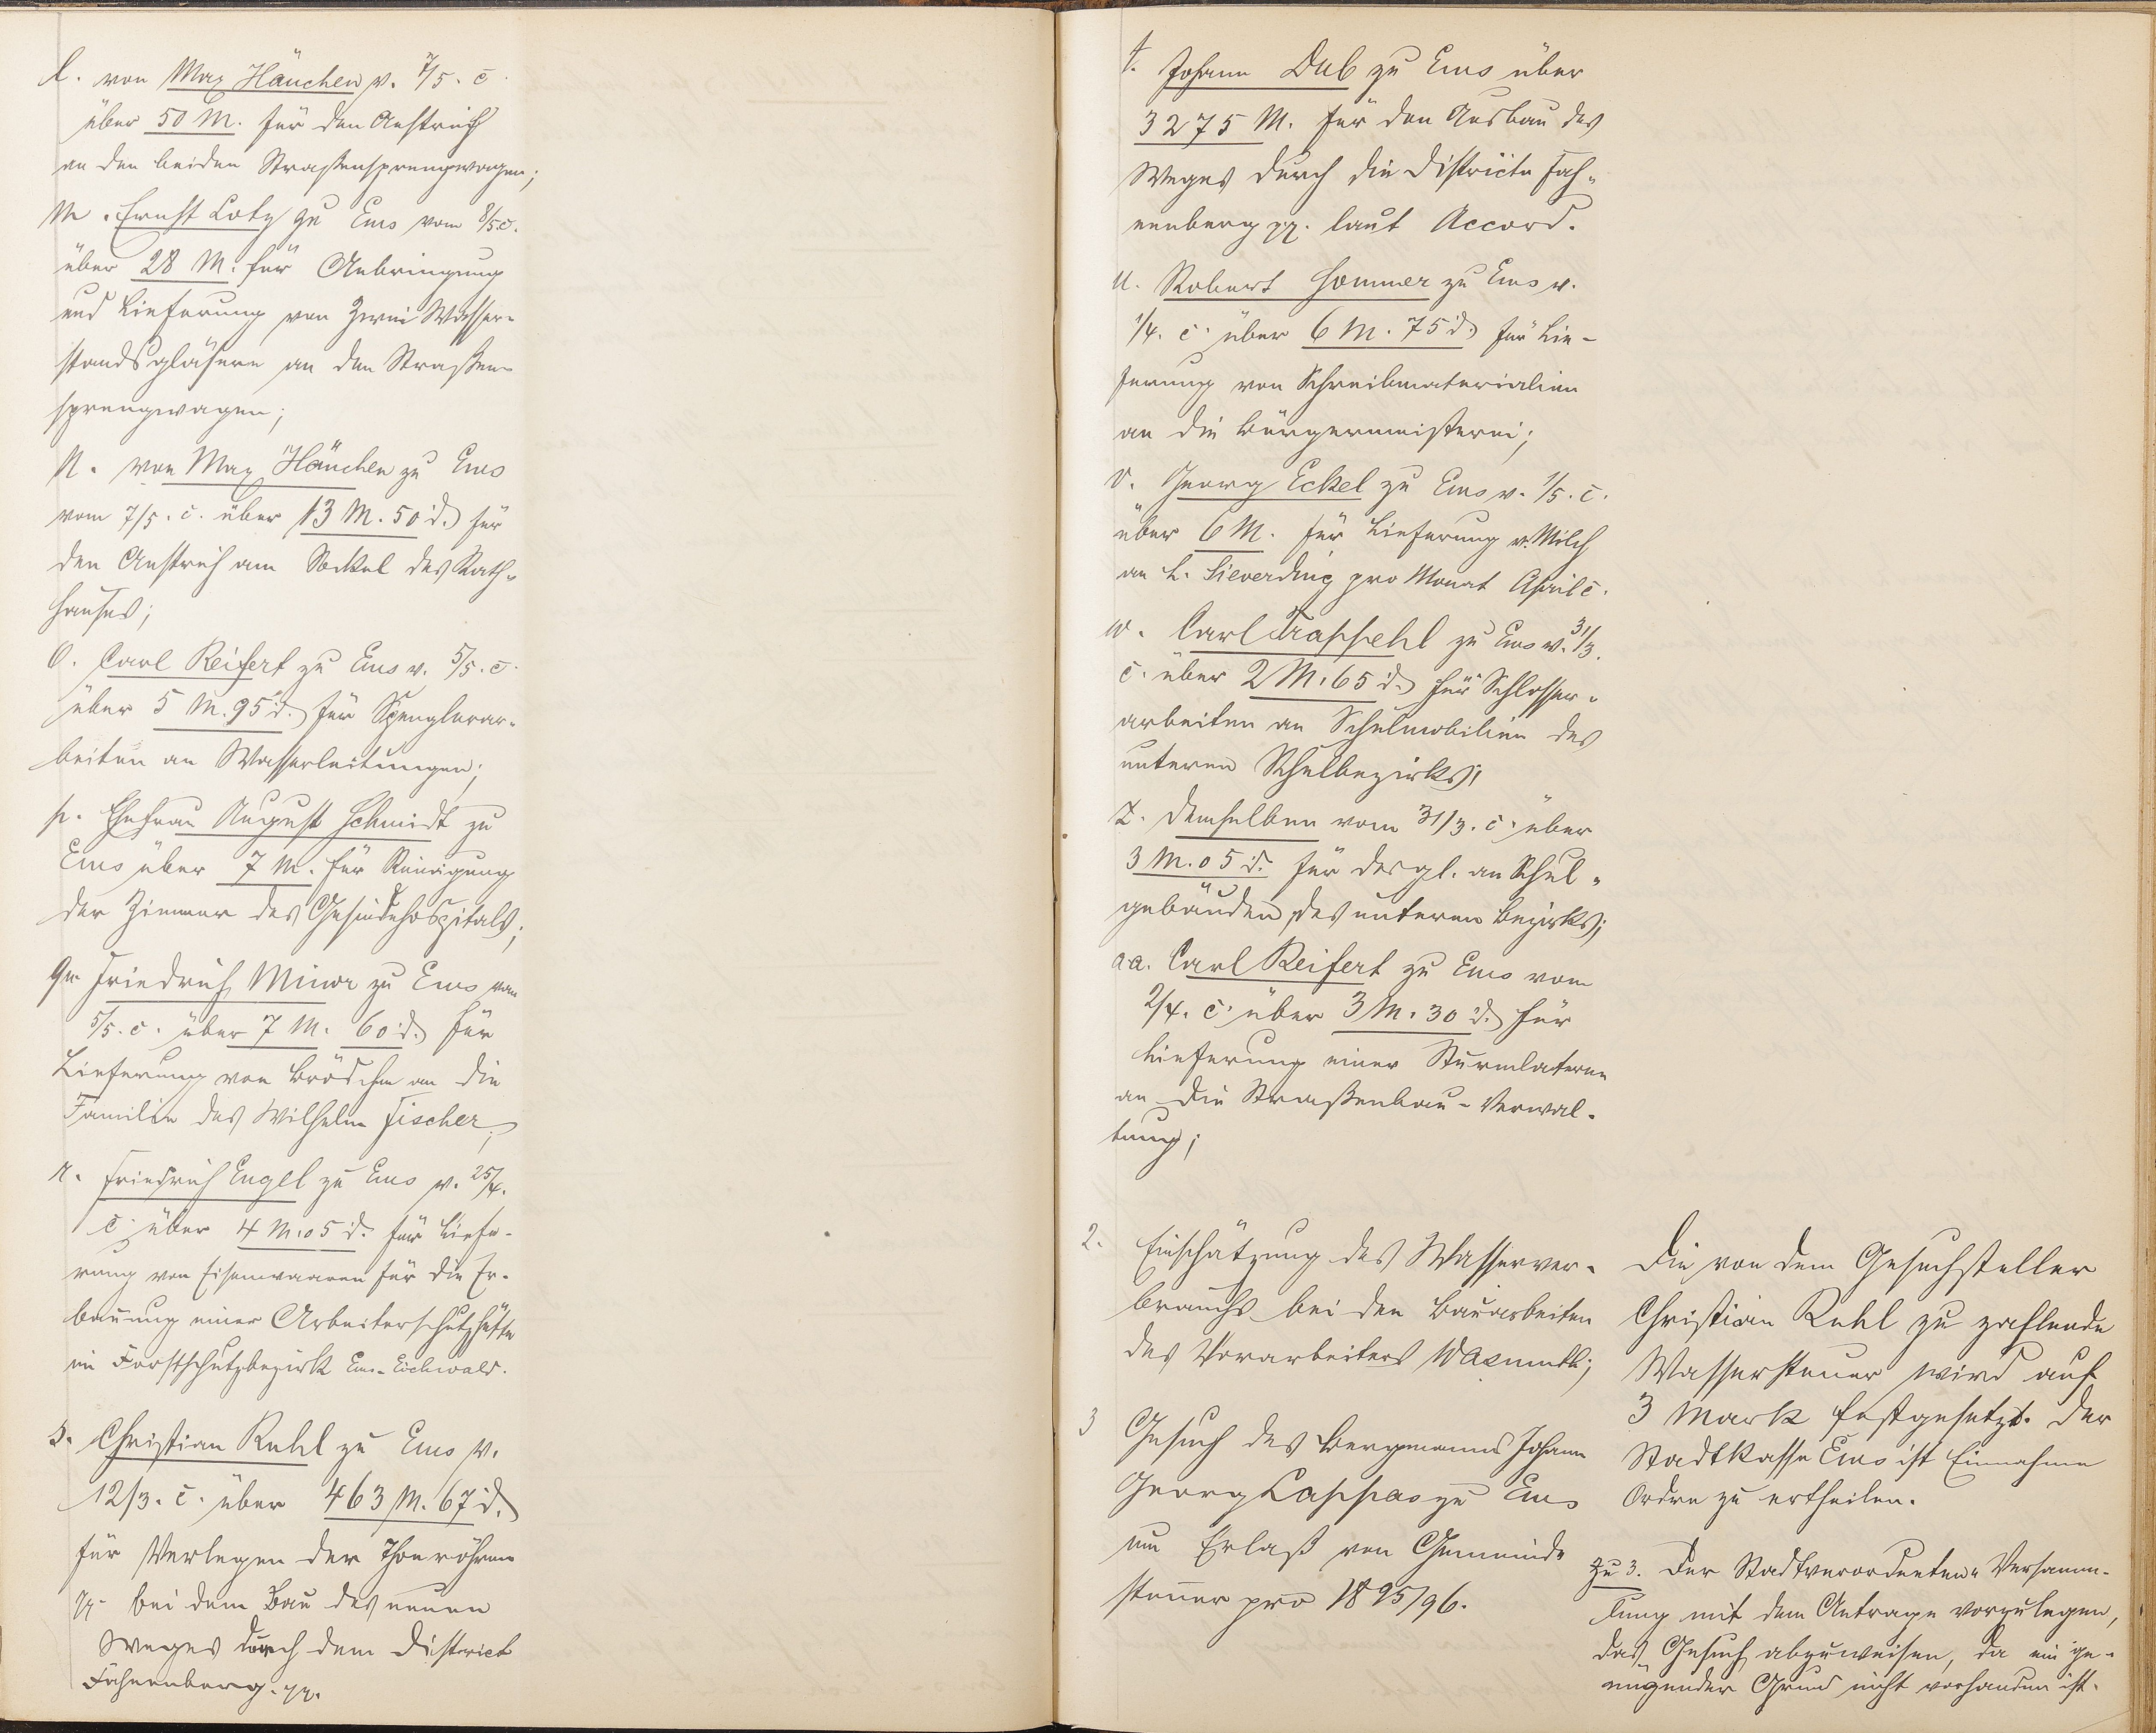 l. von Max Häuchen v. 7/5. c.
über 50 M. für den Anstrich
an den beiden Straßensprengwagen;
m. Ernst Lotz zu Ems vom 8/5. c.
über 28 M. für Anbringung
und Lieferung von zwei Wasser-
standsgläsern an den Straßen-
sprengwagen;
n. von Max Häuchen zu Ems
vom 7/5. c. über 13 M. 50 d. für
den Anstrich am Sockel des Rath-
hauses;
o. Carl Reifert zu Ems v. 5/5. c.
über 5 M. 95 d. für Spenglerar-
beiten an Wasserleitungen;
p. Ehefrau August Schmidt zu
Ems über 7 M. für Reinigung
der Zimmer des Gesindehospitals;
q. Friedrich Minor zu Ems vom
5/5. c. über 7 M. 60 d. für
Lieferung von Brödchen an die
Familie des Wilhelm Fischer;
r. Friedrich Engel zu Ems v. 25/4.
c. über 4 M. 05 d. für Liefe-
rung von Eisenwaaren für die Er-
bauung einer Arbeiterschutzhütte
im Forstschutzbezirk Ems-Eichwald.
s. Christian Ruhl zu Ems v.
12/3. c. über 463 M. 67 d.
für Verlegen der Thonröhren
pp. bei dem Bau des neuen
Weges durch dem District
Fahnenberg. pp.
t. Johann Dub zu Ems über
3275 M. für den Ausbau des
Weges durch die Districte Fah-
nenberg pp. laut Accord.
u. Robert Sommer zu Ems v.
1/4. c. über 6 M. 75 d. für Lie-
ferung von Schreibmaterialien
an die Bürgermeisterei;
v. Georg Eckel zu Ems v. 1/5. c.
über 6 M. für Lieferung v. Milch
an L. Sieverding pro Monat April c.
w. Carl Trappehl zu Ems v. 31/3.
c. über 2 M. 65 d. für Schlosser-
arbeiten an Schulmobilien des
unteren Schulbezirks;
z. demselben vom 31/3. c. über
3 M. 05 d. für desgl. an Schul-
gebäuden des unteren Bezirks;
aa. Carl Reifert zu Ems vom
2/4. c. über 3 M. 30 d. für
Lieferung einer Sturmlaterne
an die Straßenbau-Verwal-
tung;
2. Einschätzung des Wasserver-
brauchs bei den Bauarbeiten
des Vorarbeiters Wasmuth;
3 Gesuch des Bergmanns Johann
Georg Cappas zu Ems
um Erlaß von Gemeinde
steuer pro 1895/96.
Die von dem Gesuchsteller
Christian Ruhl zu zahlende
Wassersteuer wird auf
3 Mark festgesetzt. Der
Stadtkasse Ems ist Einnahme
Ordre zu ertheilen.
Zu 3. Der Stadtverordneten-Versamm-
lung mit dem Antrage vorzulegen,
das Gesuch abzuweisen, da ein ge-
nügender Grund nicht vorhanden ist.